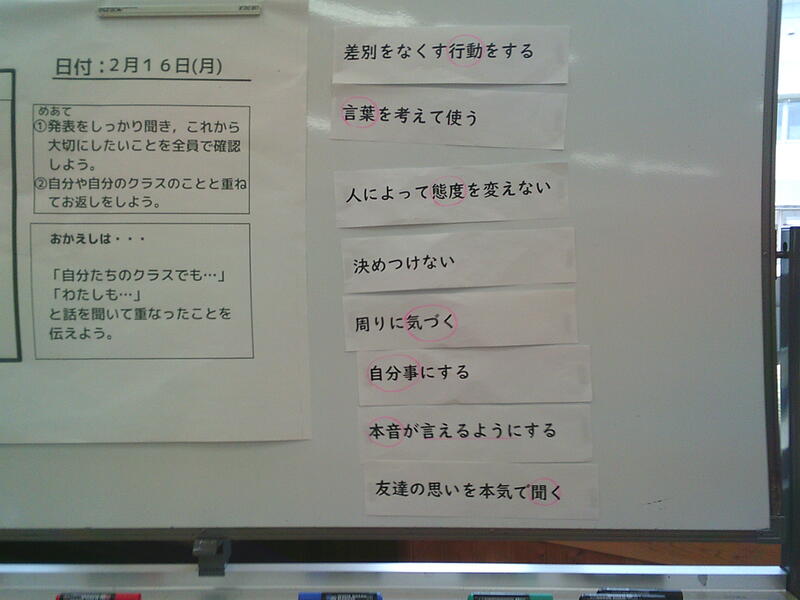 日付：2月16日(月)
めあて
①発表をしっかり聞き，これから
大切にしたいことを全員で確認
しよう。
②自分や自分のクラスのことと重ね
てお返しをしよう。
おかえしは・・・
「自分たちのクラスでも…」
「わたしも…」
と話を聞いて重なったことを
伝えよう。
差別をなくす行動をする
言葉を考えて使う
人によって態度を変えない
決めつけない
周りに気づく
自分事にする
本音が言えるようにする
友達の思いを本気で聞く